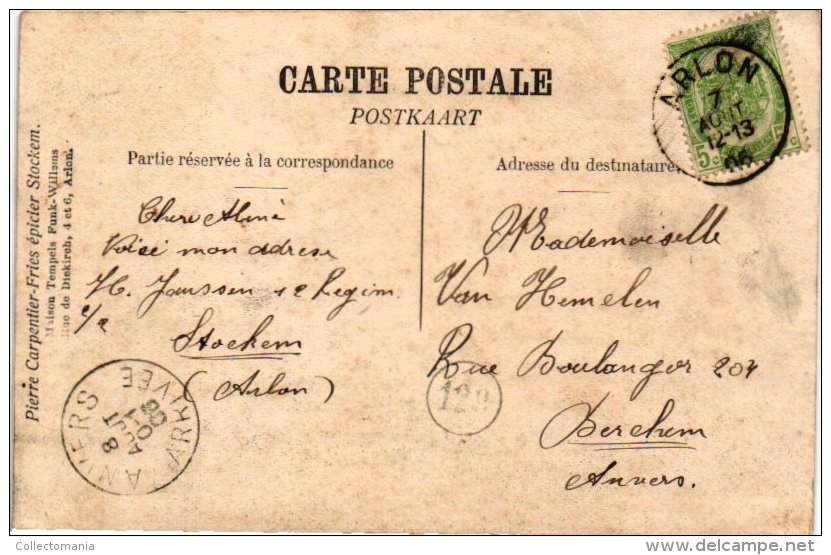 CARTE POSTALE
POSTKAART
Partie réservée à la correspondance
Adresse du destinataire
Chere Aliné
Voici mon adresse
H. Janssen 12 Regim.
c/2
Stockem
(Arlon)
Mademoiselle
Van Hemelen
Rue Boulanger 204
Berchem
Anvers.
Pierre Carpentier-Fries épicier Stockem.
Maison Tempels Funk-Willems
Rue de Diekirch, 4 et 6, Arlon.
ARLON
7
AOUT
12-13
06
5c
5c
ANVERS
ARRIVEE
8
AOUT
06
Collectomania
www.delcampe.net